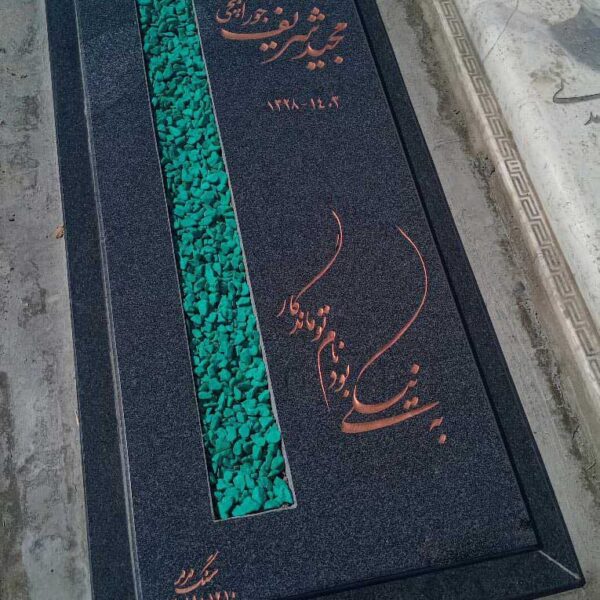 مجید شریف
جورابچی
۱۳۲۸-۱۴۰۳
به نیکی
بود نام تو ماندگار
سنگ